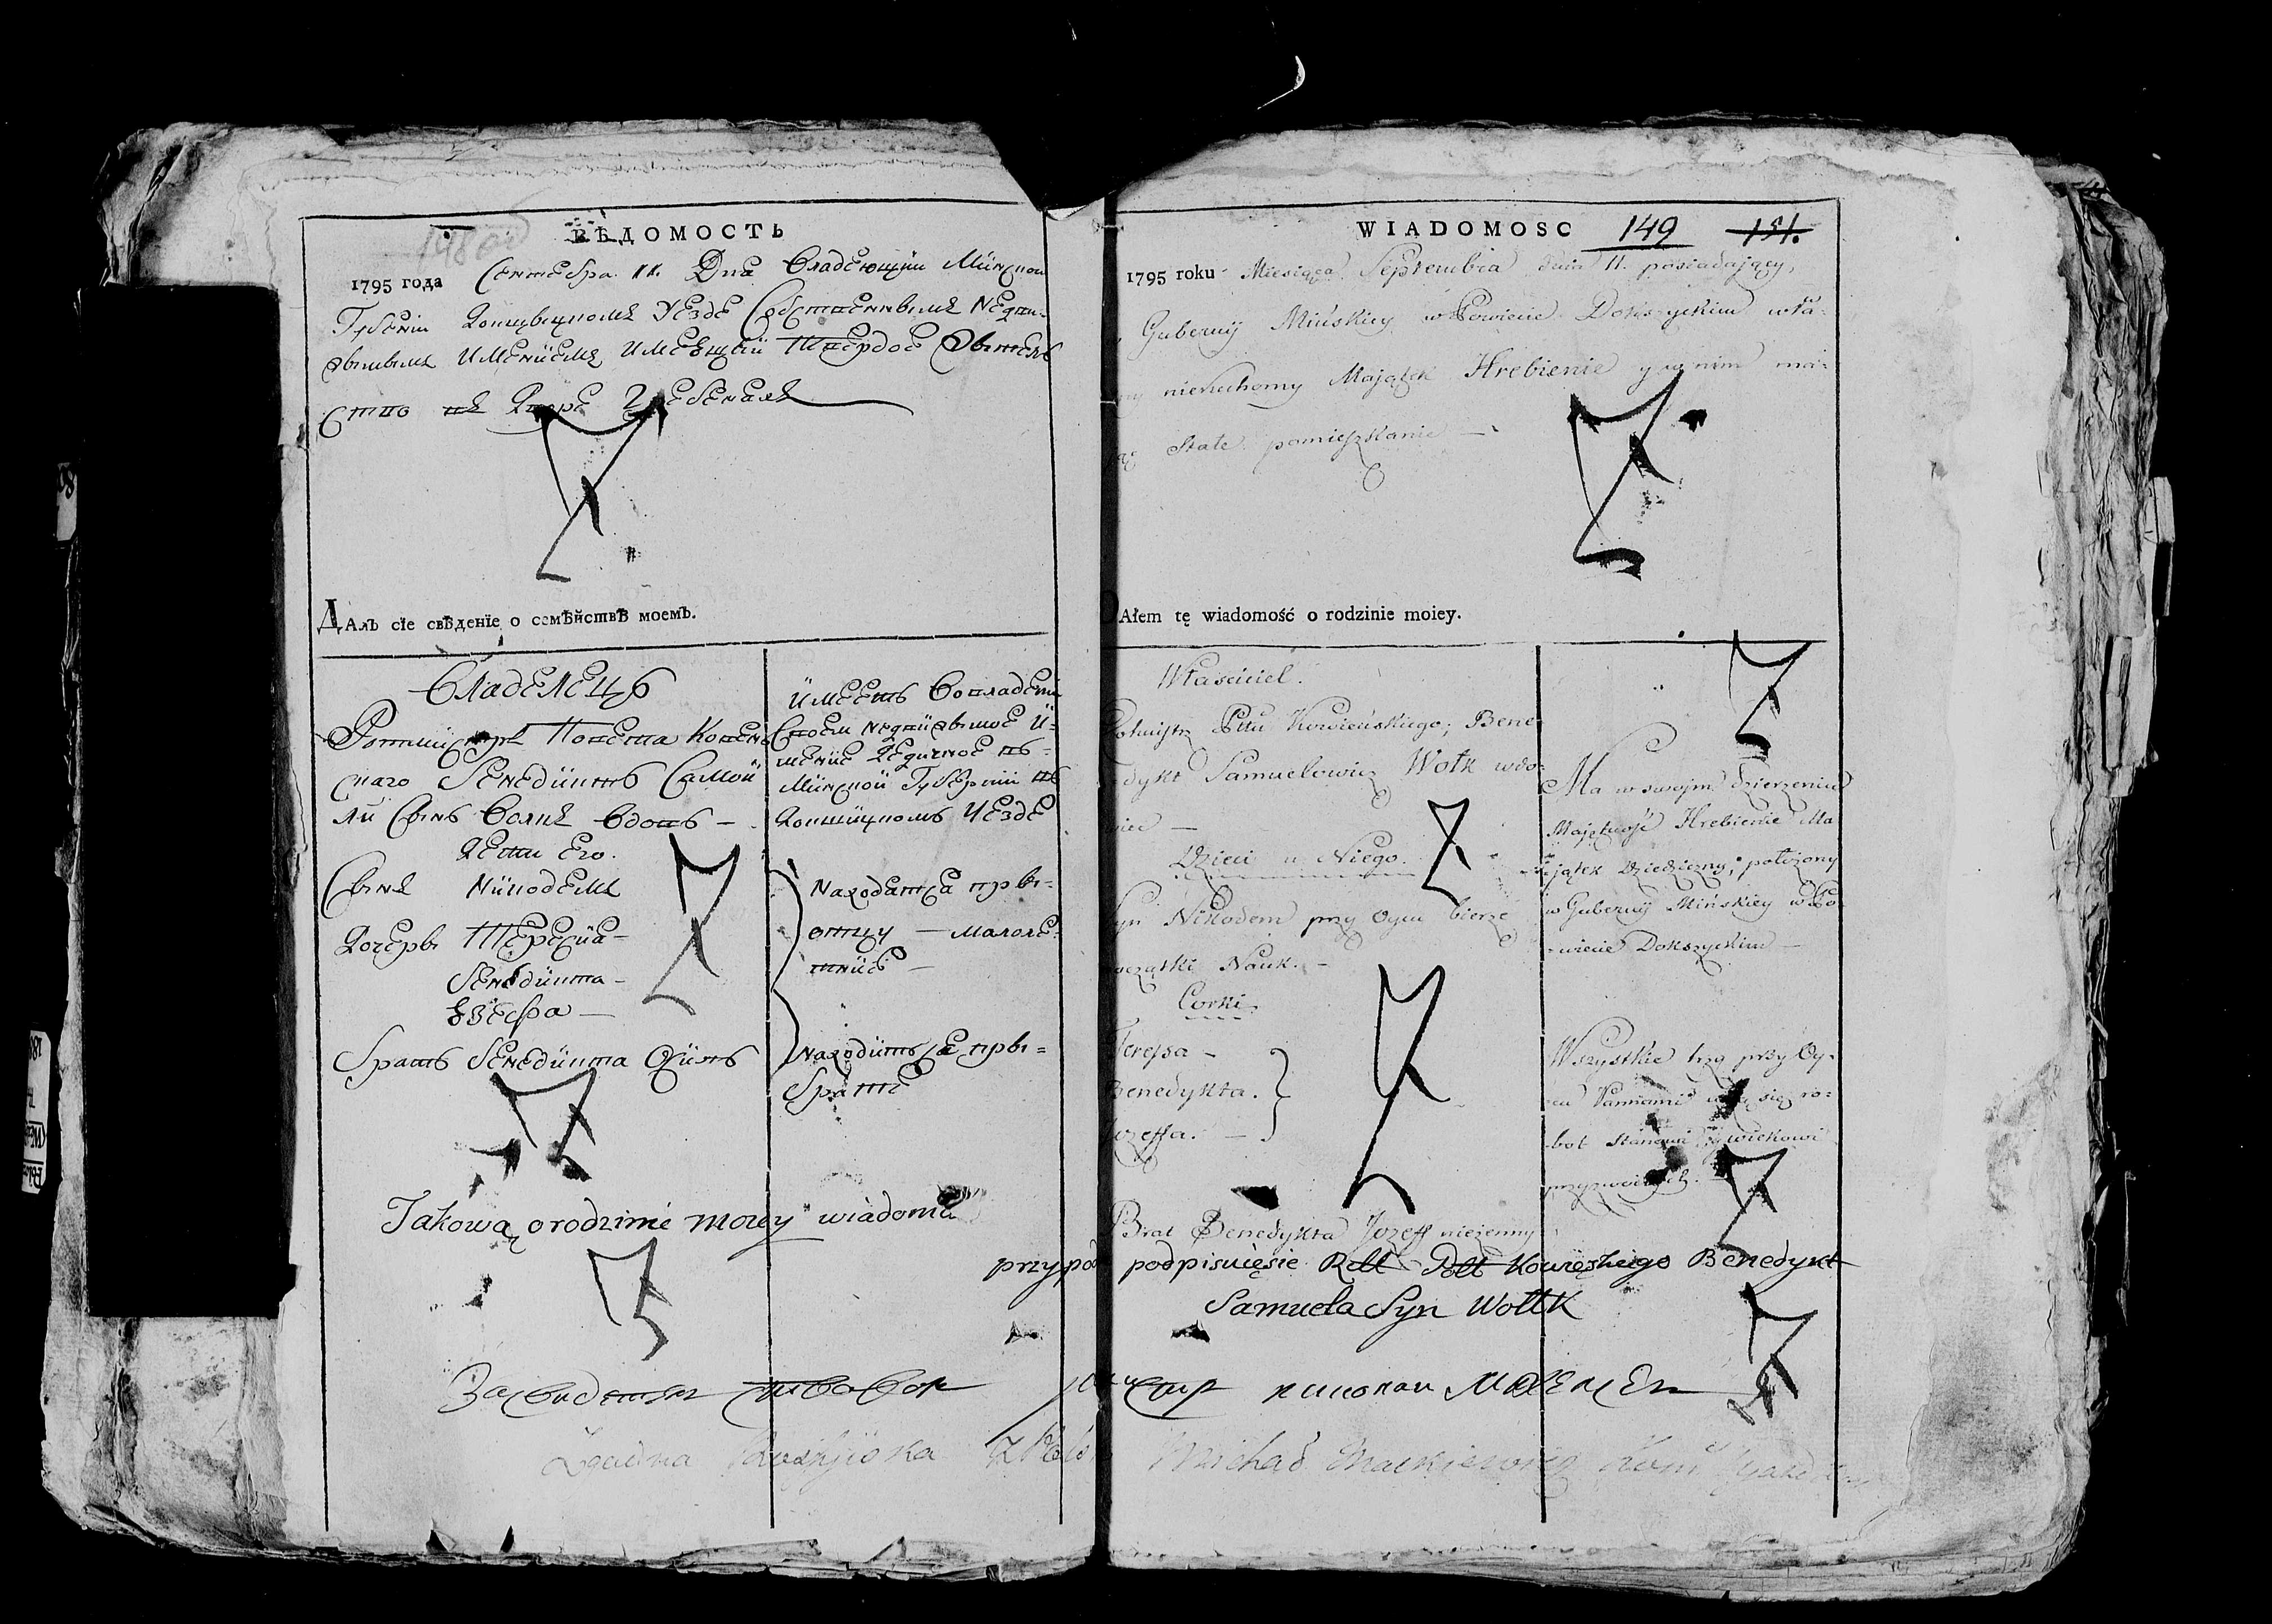 148 od
ВѢДОМОСТЬ
1795 года Сентебра 11. Дна Владеющии Минскои
Губенiи Докшицкомъ Уезде Собственнымъ Недви-
жымымъ Именïемъ Имеющïй Твердое Жытель
ство въ Дворе Гребеняхъ
ДАлъ сїе свѣденїе о семѣйствѣ моемъ.
Владелецъ
Ротмистръ Повета Ковен
скаго Бенедиктъ Самой
ли Сынъ Волкъ Вдовъ —
Дети Его.
Сынъ Никодемъ
Дочеры Тересиа —
Бенедикта —
Юзефа —
Братъ Бенедикта Юзифъ
Имеетъ Вовладени
Своем недвижимое И-
мение Дедичное въ-
Минскои Губернiи въ
Докшицкомъ Уезде
Находатса пры-
отцу — малоле-
тнiе —
Находитъса пры-
брате
Takową o rodzinie moiey wiadomo
WIADOMOSC 149 151.
1795 roku Miesiąca Septembra dnia 11. posiadający,
Gubernij Mińskiey w Powiecie Dokszyckim wła-
nieruchomy Majątek Hrebienie y w nim ma-
Stałe pomieszkanie —
DAłem tę wiadomość o rodzinie moiey.
Właściciel.
Rotmistrz Pttu Kowieńskiego; Bene-
dykt Samuelowicz Wołk wdo-
wiec —
Dzieci u Niego.
Syn Nikodem przy Oycu bierze
początki Nauk. —
Corki
Teressa —
Benedykta.
Jozeffa. —
Brat Benedykta Jozeff nieżenny
Ma w swojm dzierzeniu
Majętność Hrebienie Ma
jątek Dziedziczny, położony
w Gubernij Mińskiey w Po-
wiecie Dokszyckim —
Wszystkie trzy przy Oy-
cu Pannami uczą się ro-
bot stanowi y wiekowi
przyzwoitych.
przy pod podpisuięsie Rtt Ptt Kowięskiego Benedykt
Samuela Syn Wołk
Michał Mackiewicz